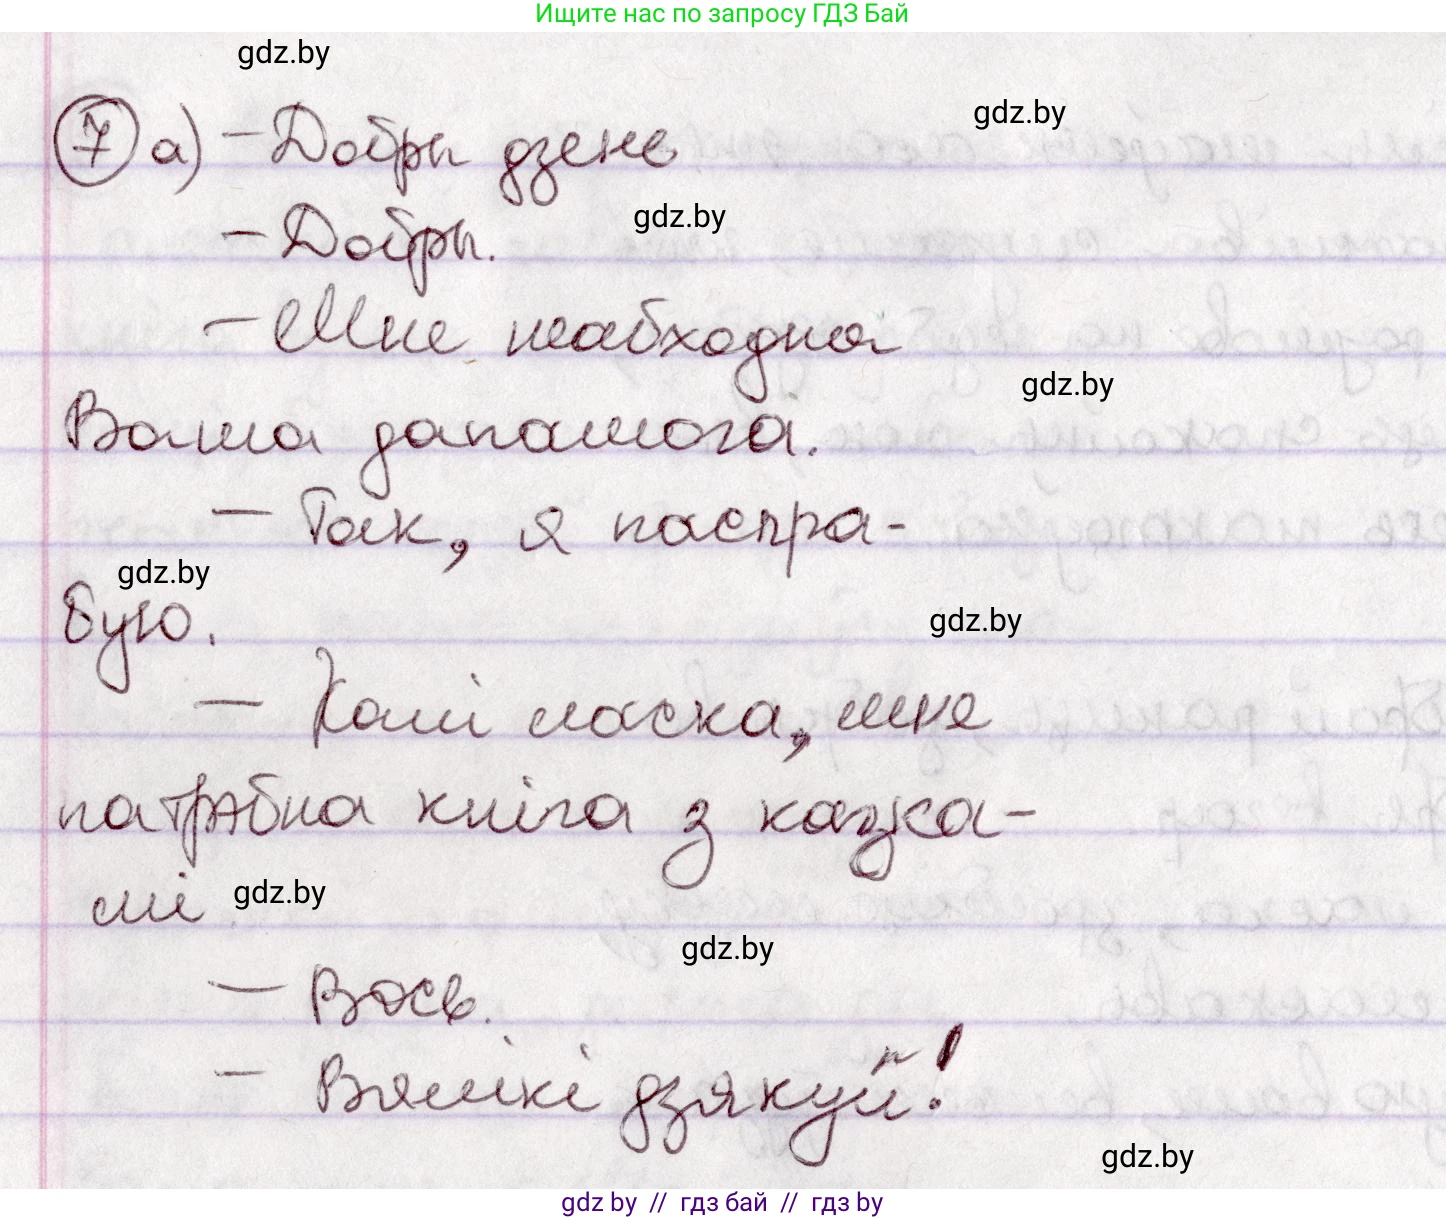 Ищите нас по запросу ГДЗ Бай
gdz.by
gdz.by
7 а) – Добры дзень
gdz.by
– Добры.
– Мне неабходна
gdz.by
Ваша дапамога.
– Так, я паспра-
gdz.by
бую.
gdz.by
– Калі ласка, мне
патрэбна кніга з казка-
мі.
gdz.by
gdz.by
– Вось.
– Вялікі дзякуй!
gdz.by
gdz.by // гдз бай // гдз by